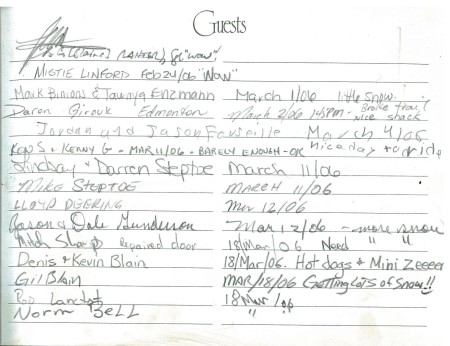 Guests
"Wow"!
MISTIE LINFORD Feb 24/06 "Wow"
Mark Binions & Tawnya Enzmann March 1/06 little snow.
Daron Girouk Edmonton March 2/06 1:45PM - Broke trail Nice shack
Jordan and Jason Fawseille March 4/06 nice day to ride
RON S & KENNY G - MAR 11/06 - BARELY ENOUGH - OK
Lindsay & Darren Steptoe March 11/06
MIKE STEPTOE MARCH 11/06
LLOYD DEERING Mar 12/06
Jason & Dale Gunderson Mar 12/06 - more snow
Mich Sharp repaired door 18/Mar/06 Need " "
Denis & Kevin Blain 18/Mar/06. Hot dogs & Mini Zeeeer
Gil Blain MAR/18/06 Getting LOTS of Snow!!
Rod Lanctot 18 Mar/06
Norm BELL "  "